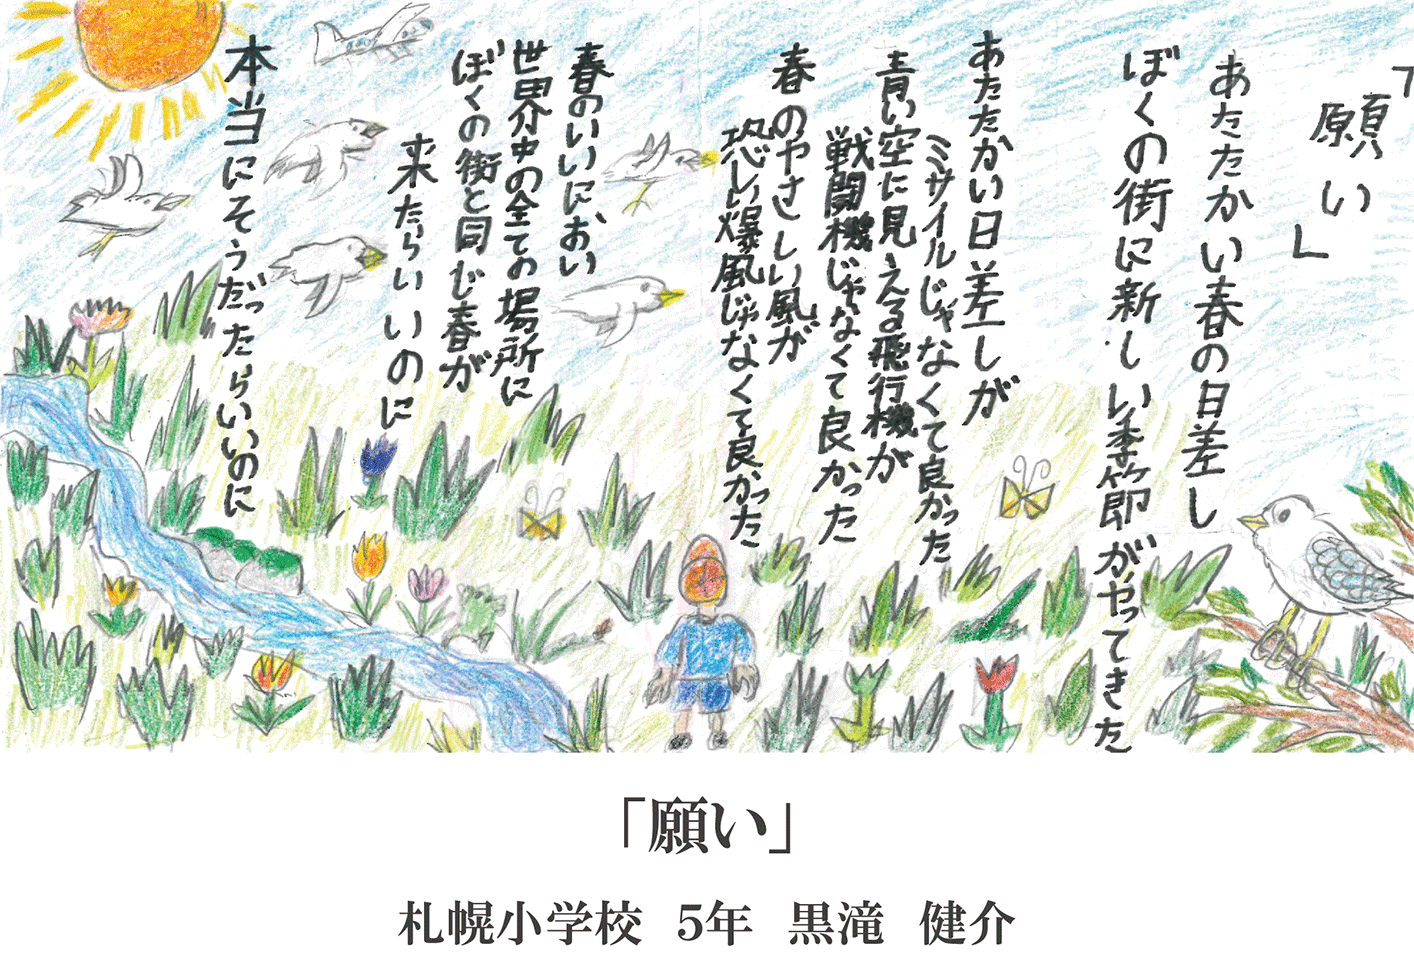 「願い」
あたたかい春の日差し
ぼくの街に新しい季節がやってきた
あたたかい日差しが
ミサイルじゃなくて良かった
青い空に見える飛行機が
戦闘機じゃなくて良かった
春のやさしい風が
恐しい爆風じゃなくて良かった
春のいいにおい
世界中の全ての場所に
ぼくの街と同じ春が
来たらいいのに
本当にそうだったらいいのに
「願い」
札幌小学校 5年 黒滝 健介